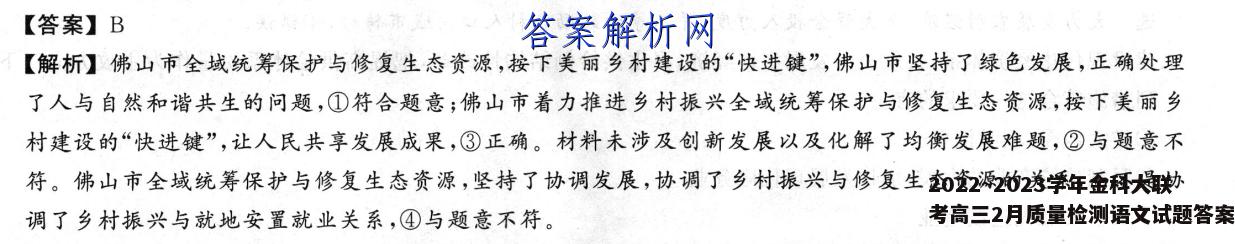 【答案】B
答案解析网
【解析】佛山市全域统筹保护与修复生态资源,按下美丽乡村建设的“快进键”,佛山市坚持了绿色发展,正确处理
了人与自然和谐共生的问题,①符合题意;佛山市着力推进乡村振兴全域统筹保护与修复生态资源,按下美丽乡
村建设的“快进键”,让人民共享发展成果,③正确。材料未涉及创新发展以及化解了均衡发展难题,②与题意不
符。佛山市全域统筹保护与修复生态资源,坚持了协调发展,协调了乡村振兴与修复生态资源的关系,而不是协
2022~2023学年金科大联
调了乡村振兴与就地安置就业关系,④与题意不符。
考高三2月质量检测语文试题答案